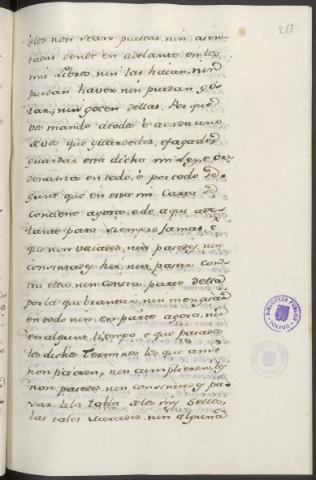 217
elas non sean puestas, nin asen-
tadas dende en adelante en los
mis Libros, nin las hayan, nin
puedan haver nin puedan go-
zar, nin gocen dellas. Por que
vos mando a todos e a cada uno
de vos que guardedes, e fagades
guardar esta dicha mi Ley, e or-
denanza en todo, e por todo se-
gunt que en esta mi Carta se
contiene agora, e de aqui ade-
lante para siempre jamas, e
que non vaiades, nin pasedes, nin
consintades hir, nin pasar con-
tra ella, nin contra parte della
por la quebrantar, nin menguar
en todo nin en parte agora, nin
en algunt tiempo e que pasados
los dichos terminos los que ansi
non pagaren, nin cumplieren, los
non pasedes, nin consintades pa-
sar a la tabla de los mis Sellos,
las tales mercedes, nin alguna
BIBLIOTECA PUBLICA
TOLEDO